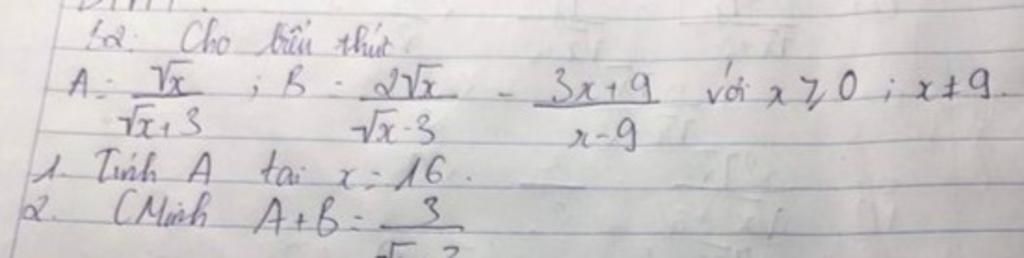 Bài 2: Cho biểu thức
A = \frac{\sqrt{x}}{\sqrt{x}+3} ; B = \frac{2\sqrt{x}}{\sqrt{x}-3} - \frac{3x+9}{x-9} với x ⩾ 0 ; x ≠ 9.
1. Tính A tại x = 16.
2. CMinh A+B = \frac{3}{\sqrt{}}